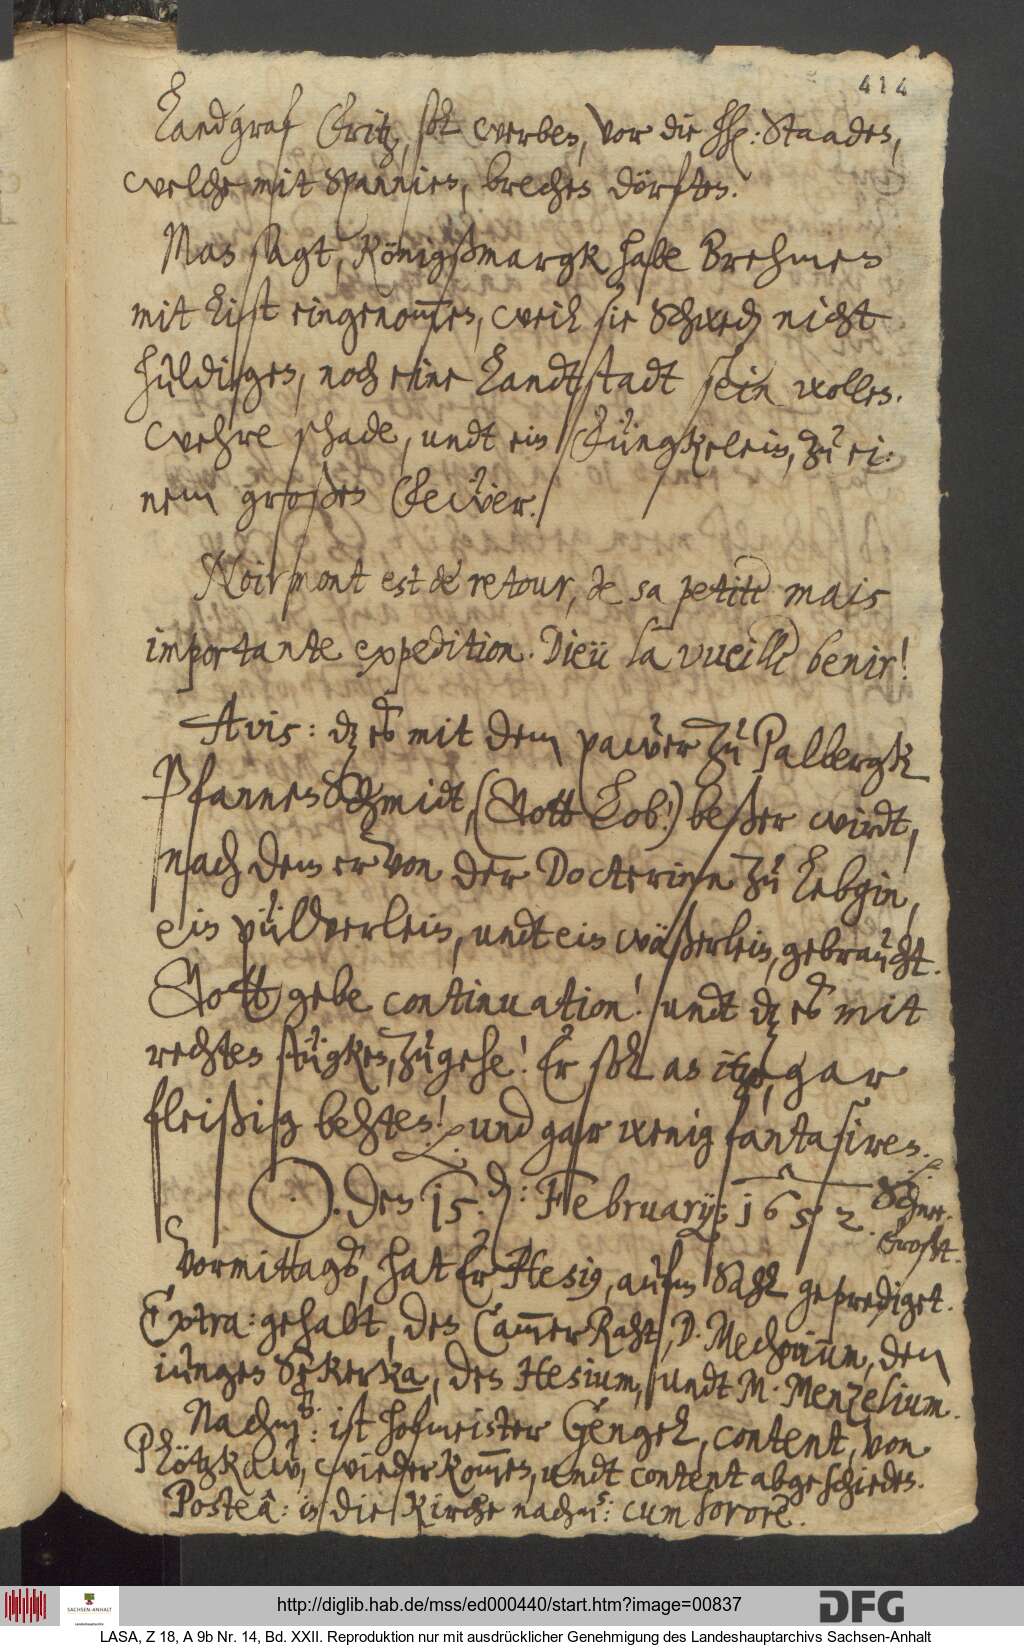 414
Landgraf Fritz, soll werben, vor die hh: Staaden,
welche mit Spannien, brechen dörften.
Man sagt, Königßmargk habe Brehmen
mit List eingenom̅en, weil sie Schwed: nicht
huldigen, noch eine Landtstadt sein wollen.
wehre schade, undt ein Füngkelein, zu ei-
nem großen Fewer.
Noirmont est de retour, de sa petite mais
importante expedition. Dieu la vueille benir!
Avis: dz es mit dem pawer zu Palbergk
Pfannenschmidt, (Gott Lob!) beßer wirdt,
nach dem er von der Docterinn zu Lebgin,
ein pülverlein, undt ein wäßerlein, gebraucht.
Gott gebe continuation! undt dz es mit
rechten stügken, zugehe! Er soll an itzo, gar
fleißig behten! und gar wenig fantasiren.
☉. den 15. d: February; 1652. Schnee.
Frost.
Vormittags, hat Er Hesius, aufm Sahl geprediget.
Extra: gehabt, den Cam̅erRaht, D. Mechovium, den
iungen Sekerka, den Hesium, undt M. Menzelium.
Nachm: ist hofmeister Gengel, content, von
Plötzkaw, wiederkom̅en, undt content abgeschieden.
Posteâ: in die Kirche nachm: cum sorore.
http://diglib.hab.de/mss/ed000440/start.htm?image=00837
DFG
SACHSEN-ANHALT
LASA, Z 18, A 9b Nr. 14, Bd. XXII. Reproduktion nur mit ausdrücklicher Genehmigung des Landeshauptarchivs Sachsen-Anhalt